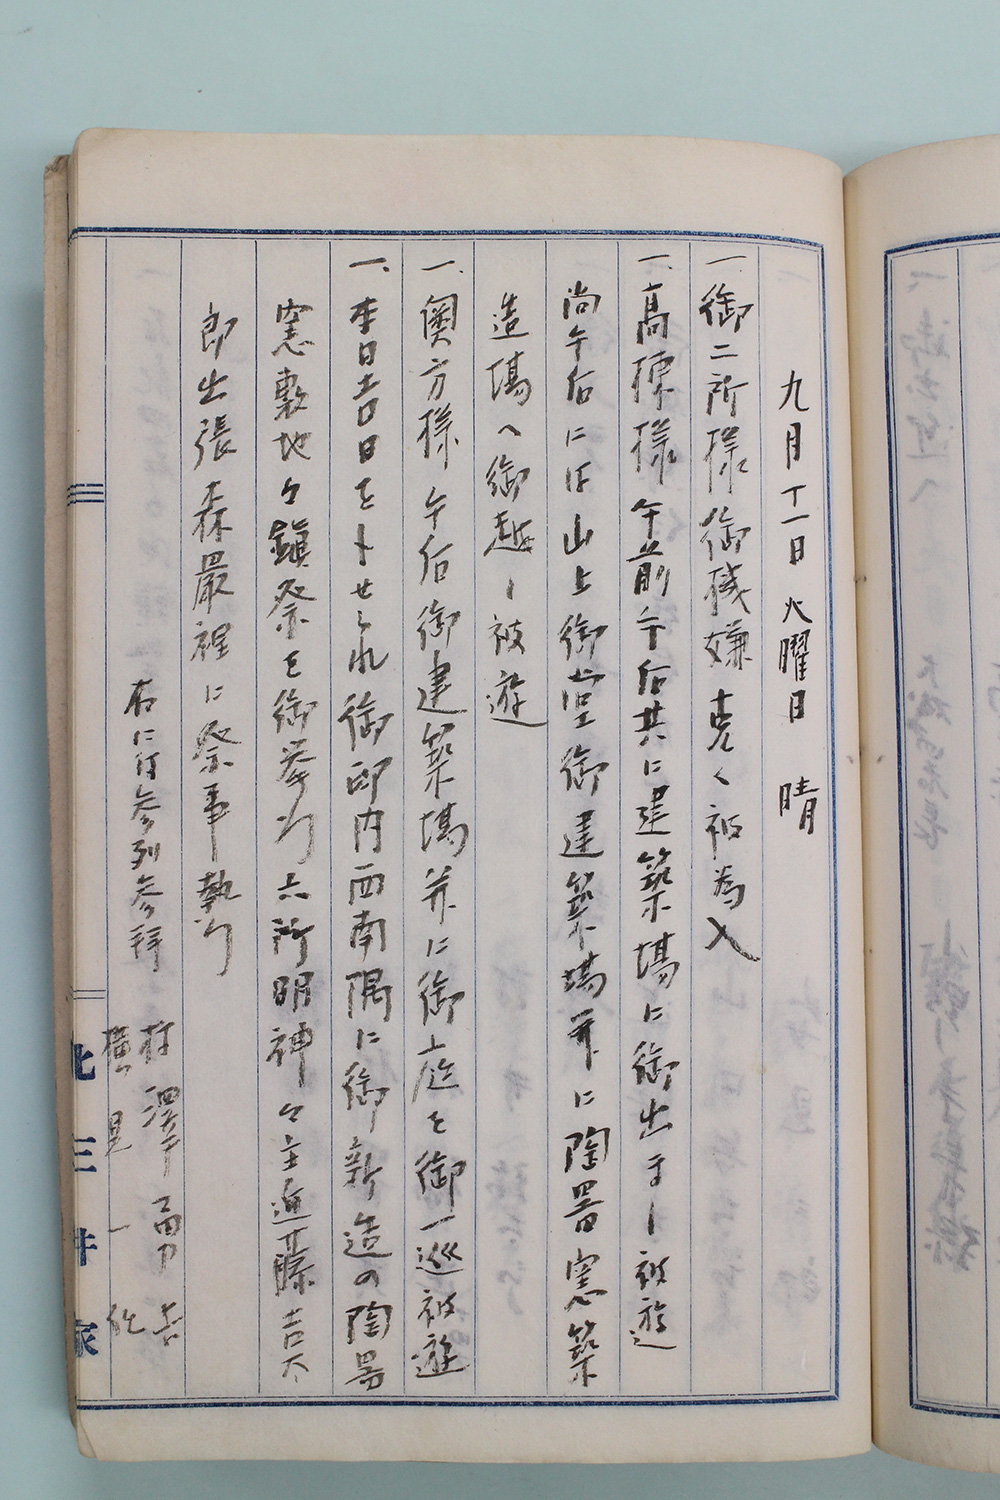 九月十一日 火曜日 晴
一、御二所様御機嫌克く被為入
一、高棟様午前午后共に建築場に御出まし被遊
尚午后には山上御堂御建築場并に陶器窯築
造場へ御越し被遊
一、奥方様午后御建築場并に御庭を御一巡被遊
一、本日吉日を卜せられ御邸内西南隅に御新造の陶器
窯敷地々鎮祭を御挙行六所明神々主近藤吉太
郎出張森厳裡に祭事執行
右に付参列参拝
村澤勇吉
横見一
北三井家